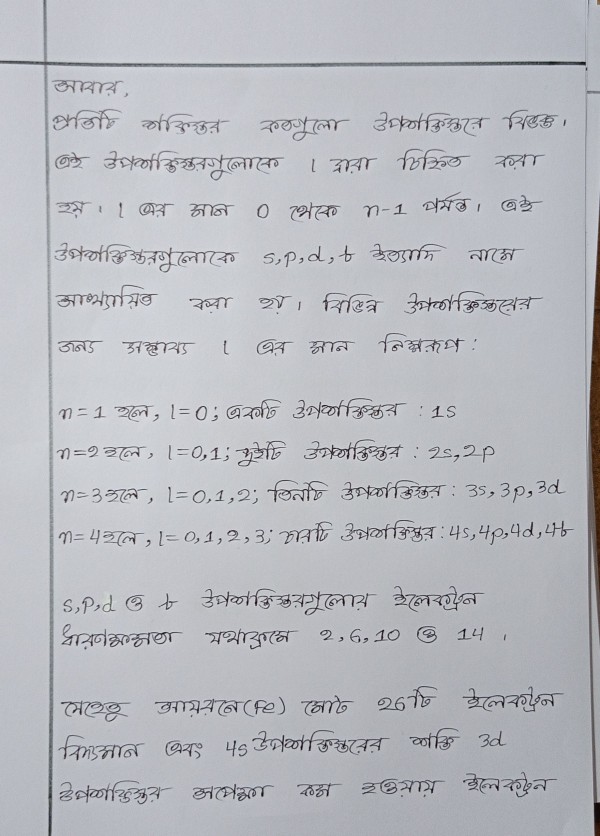 আবার,
প্রতিটি শক্তিস্তর কতগুলো উপশক্তিস্তরে বিভক্ত।
এই উপশক্তিস্তরগুলোকে l দ্বারা চিহ্নিত করা
হয়। l এর মান 0 থেকে n-1 পর্যন্ত। এই
উপশক্তিস্তরগুলোকে s,p,d,f ইত্যাদি নামে
আখ্যায়িত করা হয়। বিভিন্ন উপশক্তিস্তরের
জন্য সম্ভাব্য l এর মান নিম্নরূপ:
n=1 হলে, l=0; একটি উপশক্তিস্তর : 1s
n=2 হলে, l=0,1; দুইটি উপশক্তিস্তর : 2s,2p
n=3 হলে, l=0,1,2; তিনটি উপশক্তিস্তর: 3s,3p,3d
n=4 হলে, l=0,1,2,3; চারটি উপশক্তিস্তর: 4s,4p,4d,4f
s,p,d ও f উপশক্তিস্তরগুলোর ইলেকট্রন
ধারণক্ষমতা যথাক্রমে 2,6,10 ও 14 ।
যেহেতু আয়রনে(Fe) মোট 26টি ইলেকট্রন
বিদ্যমান এবং 4s উপশক্তিস্তরের শক্তি 3d
উপশক্তিস্তর অপেক্ষা কম হওয়ায় ইলেকট্রন